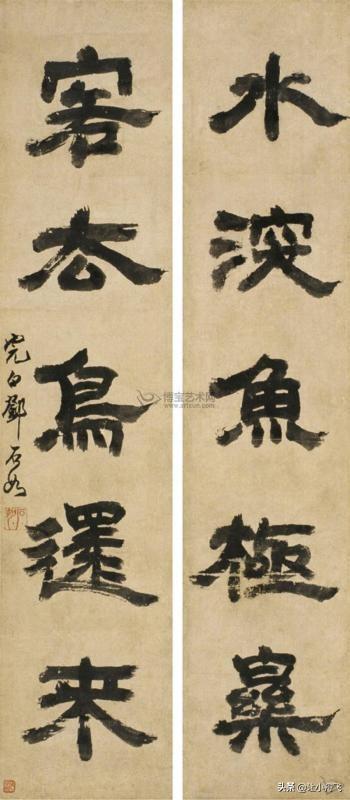 水深魚極樂
客去鳥還來
完白鄧石如
博宝艺术网
www.artxun.com
头条